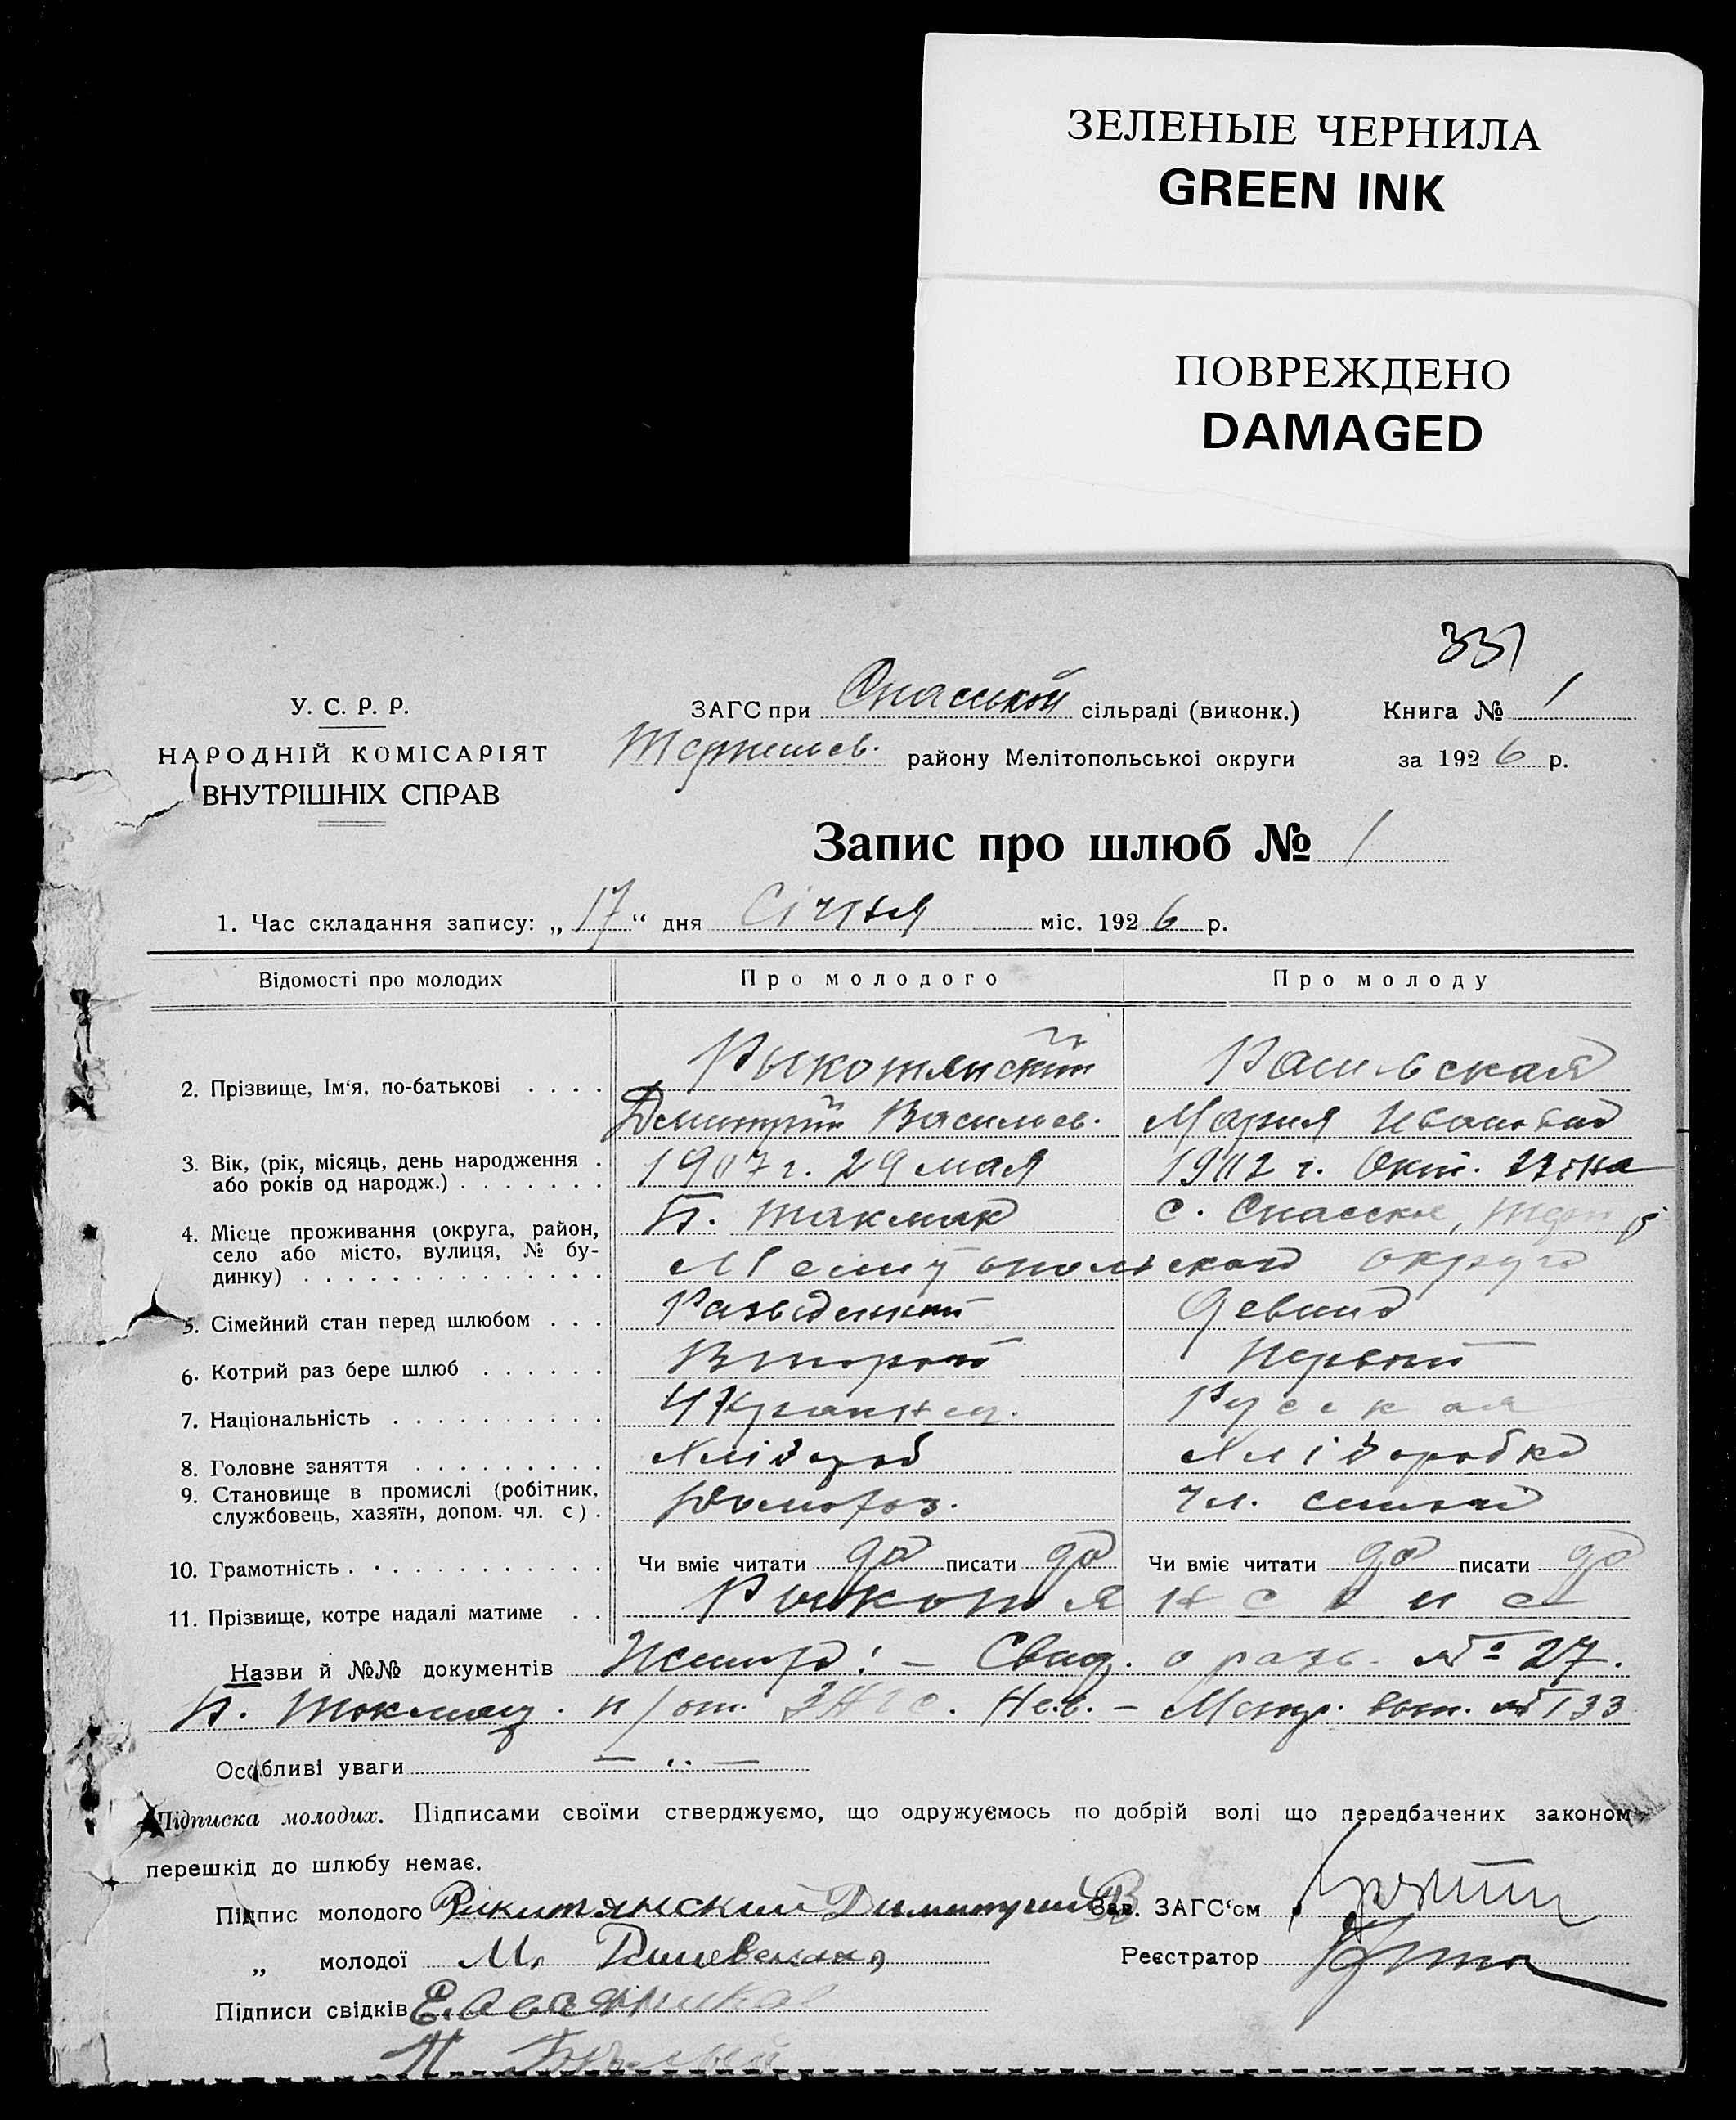 ЗЕЛЕНЫЕ ЧЕРНИЛА
GREEN INK
ПОВРЕЖДЕНО
DAMAGED
331
У. С. Р. Р.
НАРОДНІЙ КОМІСАРІЯТ
ВНУТРІШНІХ СПРАВ
ЗАГС при Спаській сільраді (виконк.) Книга № 1
району Мелітопольської округи за 1926 р.
Запис про шлюб № 1
1. Час складання запису: „17“ дня Січня міс. 1926 р.
Відомості про молодих Про молодого Про молоду
2. Прізвище, Ім‘я, по-батькові . . . . Рыкотянский
Дмитрий Васильев. Мария Ивановна
3. Вік, (рік, місяць, день народження . 1907 г. 29 мая 1902 г. Окт.
або років од народж.) . . . . . . .
4. Місце проживання (округа, район, Б. Такмак с. Спасское,
село або місто, вулиця, № бу-
динку) . . . . . . . . . . . . . . Мелитопольского округа
5. Сімейний стан перед шлюбом . . . Разведенный Девица
6. Котрий раз бере шлюб . . . . . . Второй Первый
7. Національність . . . . . . . . . . Украинец. Русская
8. Головне заняття . . . . . . . . . Хлібороб Хліборобка
9. Становище в промислі (робітник, Домохоз. Чл. семьи
службовець, хазяїн, допом. чл. с) .
10. Грамотність . . . . . . . . . . . Чи вміє читати да писати да Чи вміє читати да писати да
11. Прізвище, котре надалі матиме . .
Назви й №№ документів Жениха: – Свид. о разв. № 27.
Б. Токмац. п/от. ЗАГС. Нев. – Метр. вып. № 133
Особливі уваги — .. —
Підписка молодих. Підписами своїми стверджуємо, що одружуємось по добрій волі що передбачених законом
перешкід до шлюбу немає.
Підпис молодого Рикитянский Димитрий В Зав. ЗАГС‘ом
„ молодої М.
Реєстратор
Підписи свідків